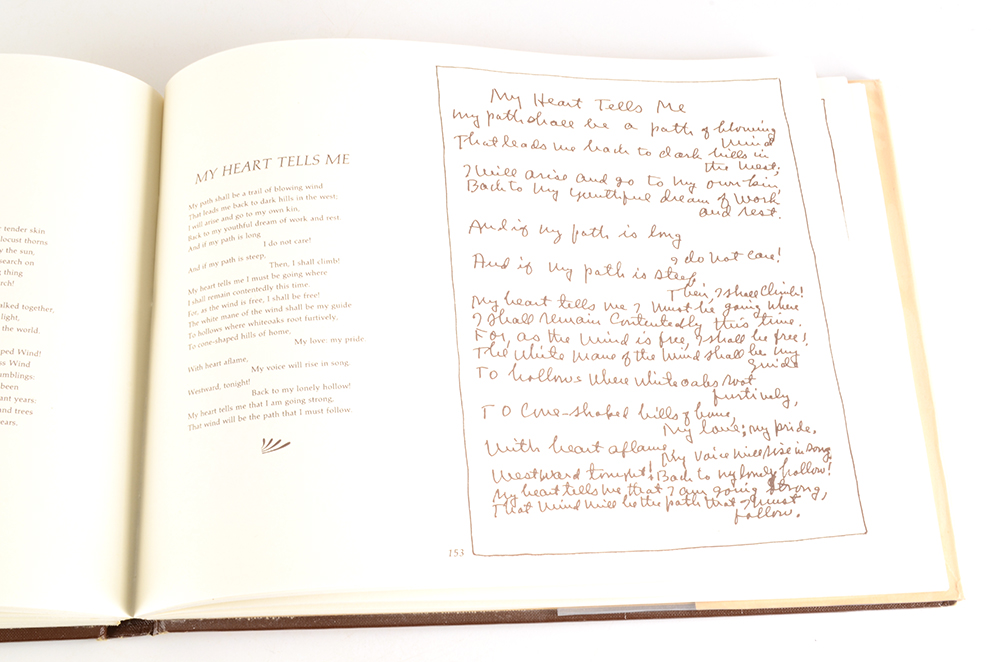 e tender skin
locust thorns
y the sun,
search on
g thing
rch!
alked together,
light,
the world.
ped Wind!
ss Wind
umblings:
been
ant years.
and trees
ears.
MY HEART TELLS ME
My path shall be a trail of blowing wind
That leads me back to dark hills in the west;
I will arise and go to my own kin,
Back to my youthful dream of work and rest.
And if my path is long
I do not care!
And if my path is steep,
Then, I shall climb!
My heart tells me I must be going where
I shall remain contentedly this time.
For, as the wind is free, I shall be free!
The white mane of the wind shall be my guide
To hollows where whiteoaks root furtively,
To cone-shaped hills of home,
My love; my pride.
With heart aflame,
My voice will rise in song.
Westward, tonight!
Back to my lonely hollow!
My heart tells me that I am going strong,
That wind will be the path that I must follow.
153
My Heart Tells Me
My path shall be a path of blowing
wind
That leads me back to dark hills in
the west;
I will arise and go to my own kin,
Back to my youthful dream of work
and rest.
And if my path is long
I do not care!
And if my path is steep,
Then, I shall climb!
My heart tells me I must be going where
I shall remain contentedly this time.
For, as the wind is free, I shall be free!
The white mane of the wind shall be my
guide
To hollows where white oaks root
furtively,
To cone-shaped hills of home,
My love; my pride.
With heart aflame
My voice will rise in song
Westward tonight! Back to my lonely hollow!
My heart tells me that I am going strong,
That wind will be the path that I must
follow.